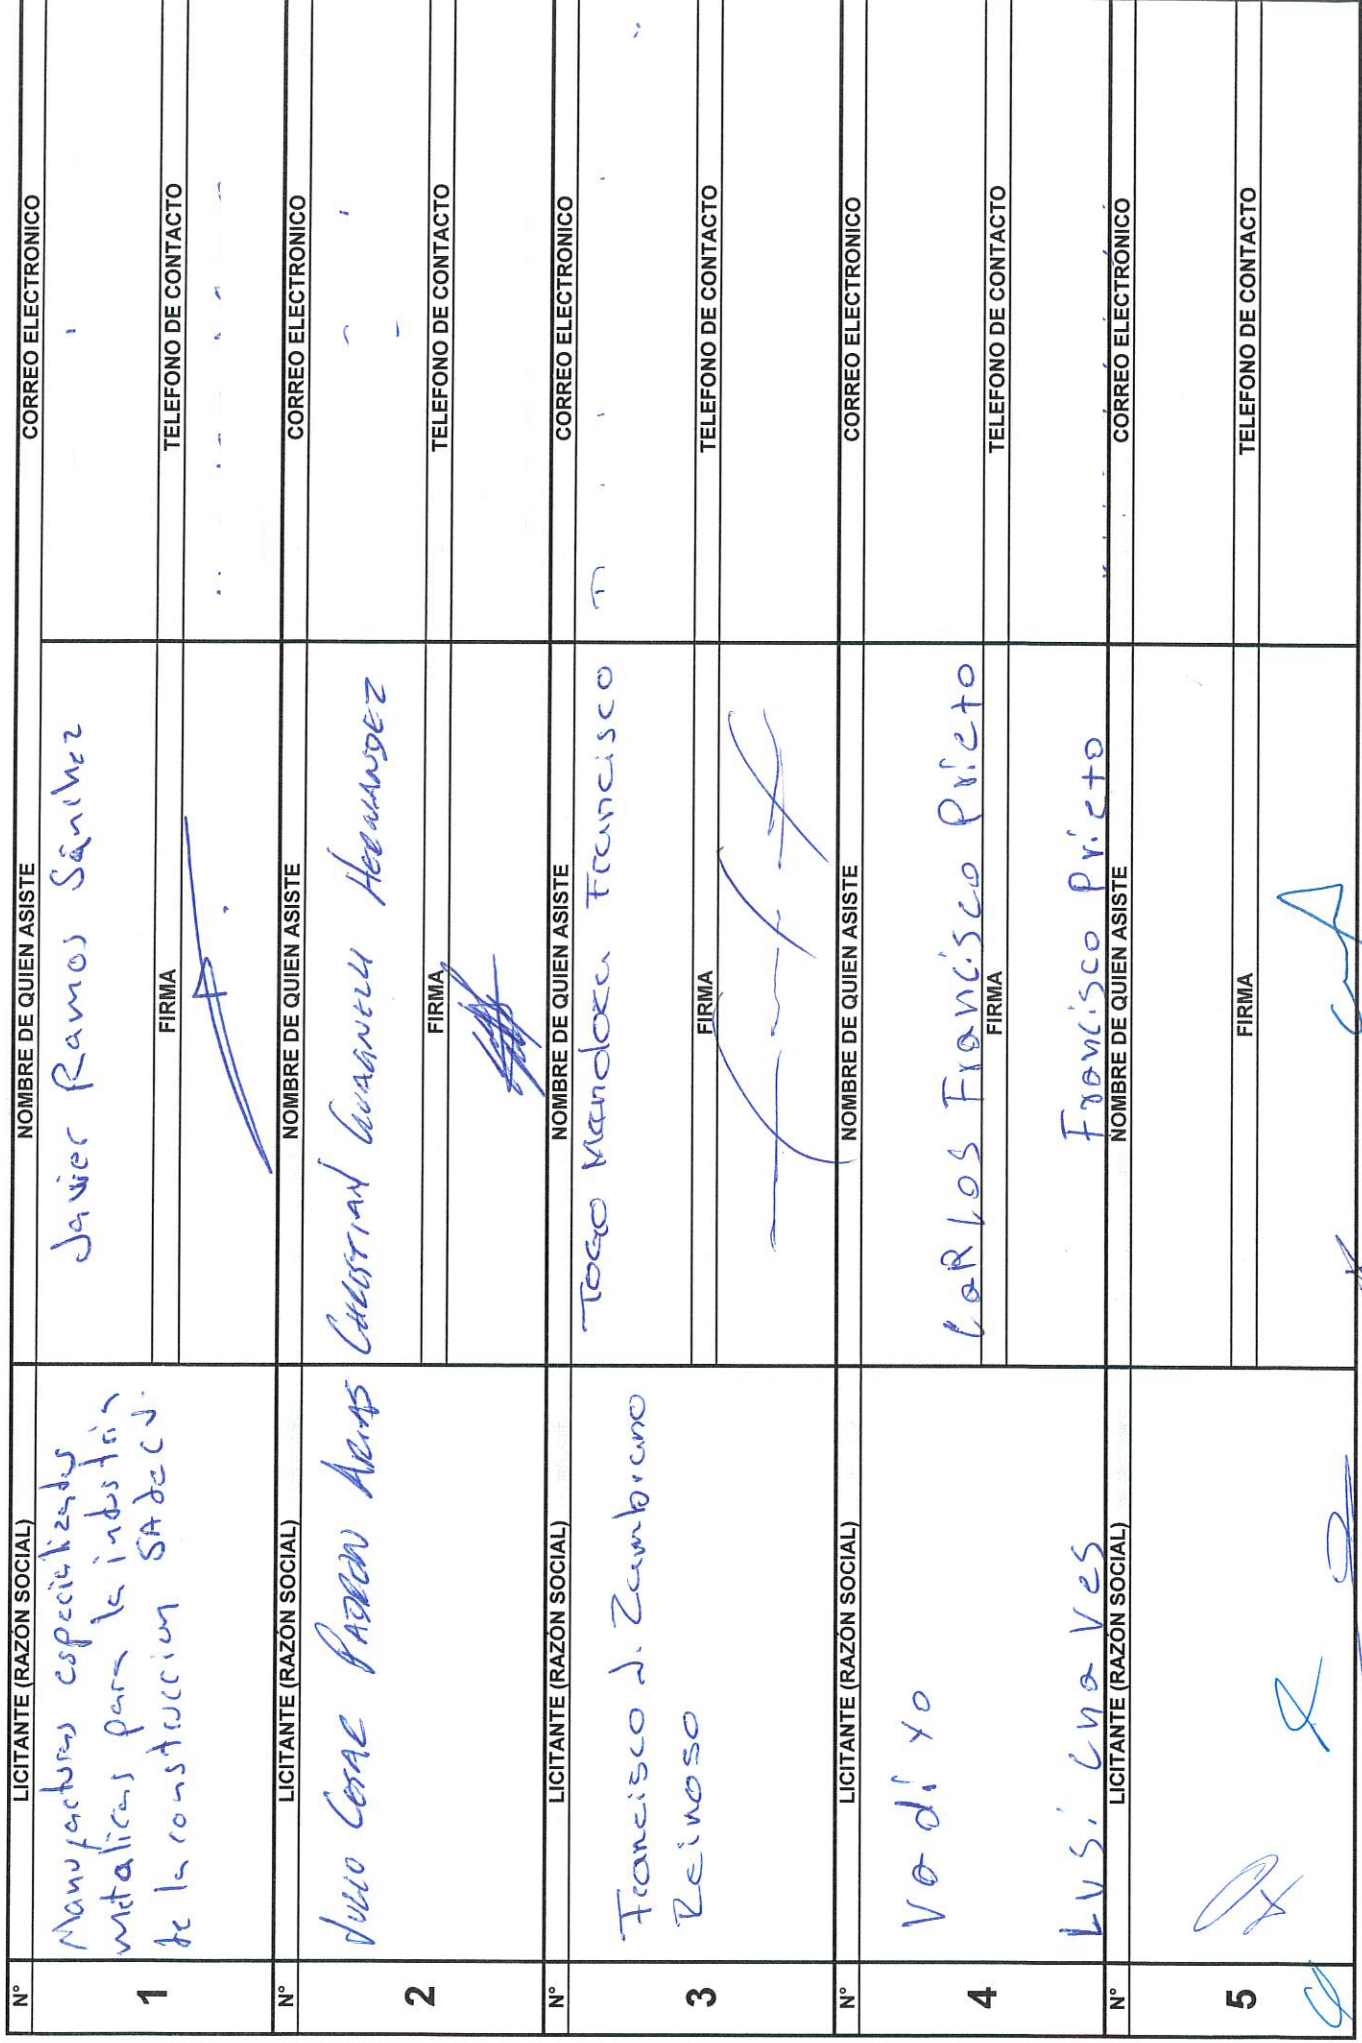 N° LICITANTE (RAZÓN SOCIAL) NOMBRE DE QUIEN ASISTE CORREO ELECTRONICO
1
Manufacturas especializadas
metalicas para la industria
de la construccion SA de CV.
Javier Ramos Sánchez
FIRMA TELEFONO DE CONTACTO
N° LICITANTE (RAZÓN SOCIAL) NOMBRE DE QUIEN ASISTE CORREO ELECTRONICO
2
Julio Cesar Padron Arias
Christian Hernandez
FIRMA TELEFONO DE CONTACTO
N° LICITANTE (RAZÓN SOCIAL) NOMBRE DE QUIEN ASISTE CORREO ELECTRONICO
3
Francisco J. Zambrano
Reinoso
Togo Mandoza Francisco
FIRMA TELEFONO DE CONTACTO
N° LICITANTE (RAZÓN SOCIAL) NOMBRE DE QUIEN ASISTE CORREO ELECTRONICO
4
Vadixo
Carlos Francisco Prieto
FIRMA TELEFONO DE CONTACTO
Lusi Chaves
Francisco Prieto
N° LICITANTE (RAZÓN SOCIAL) NOMBRE DE QUIEN ASISTE CORREO ELECTRÓNICO
5
FIRMA TELEFONO DE CONTACTO